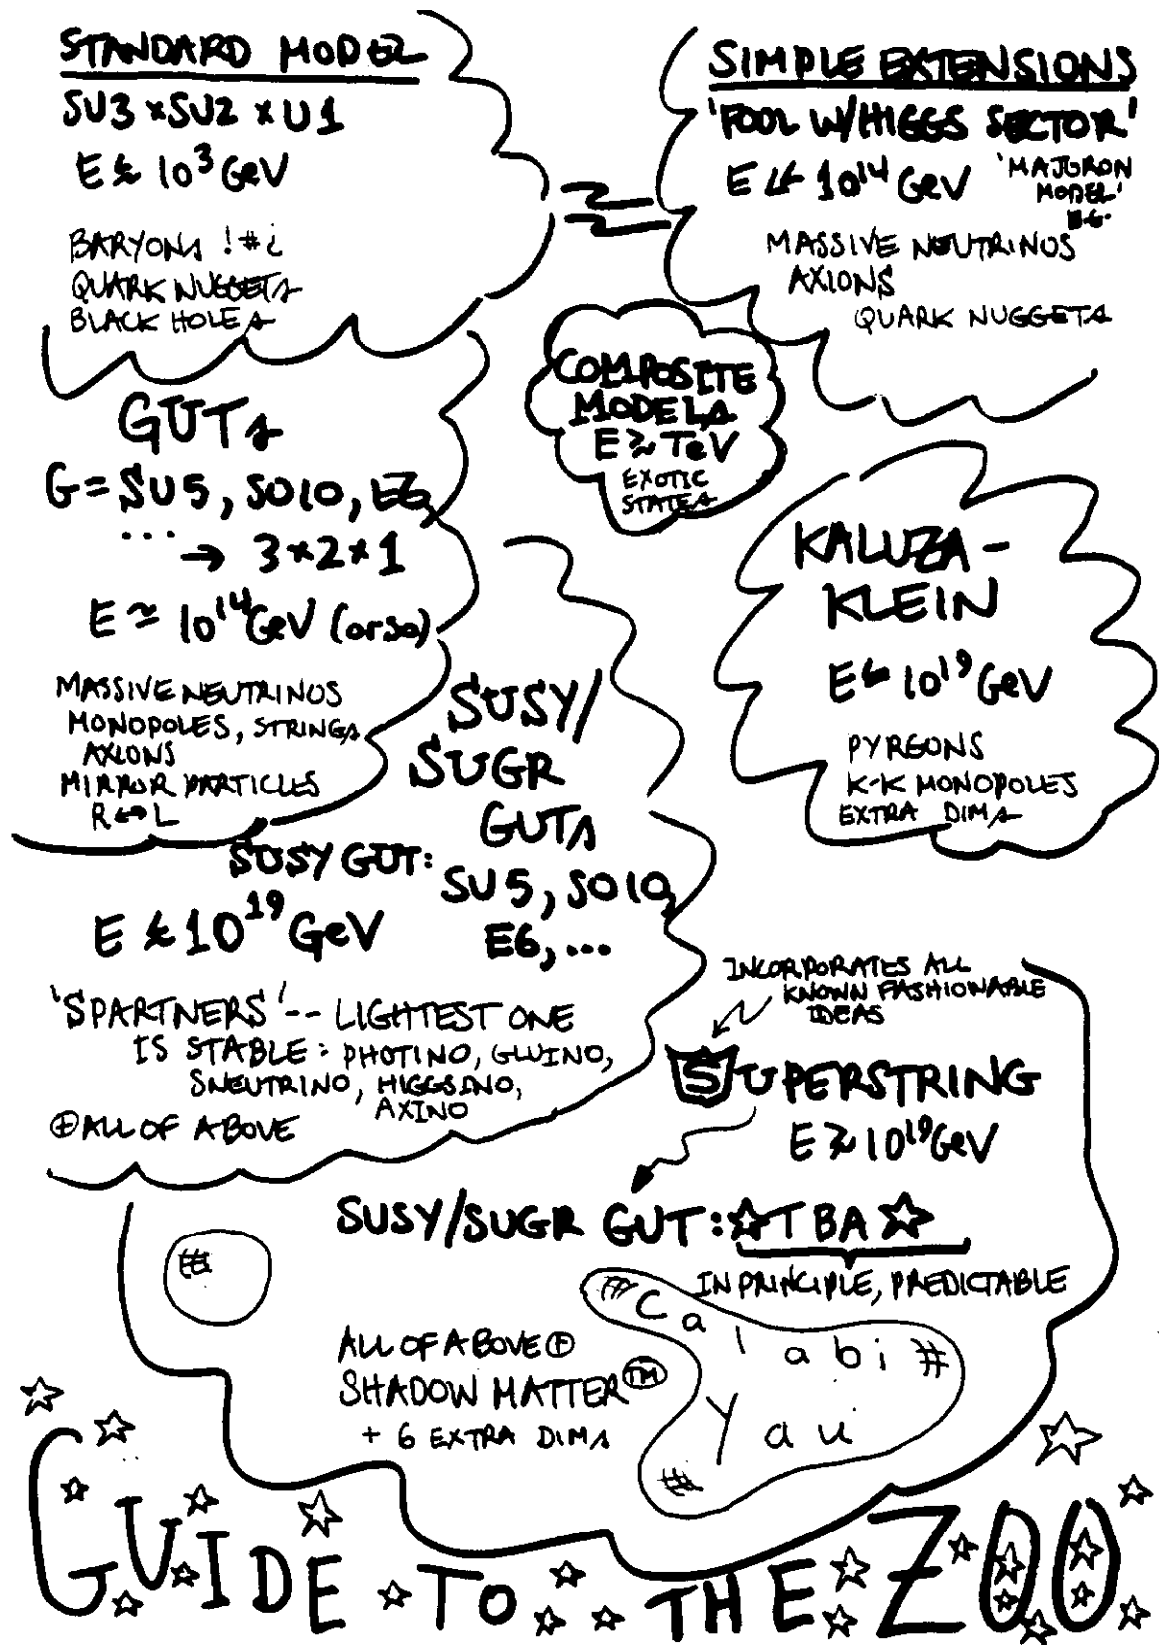 STANDARD MODEL
SU3 × SU2 × U1
E ≲ 10³ GeV
BARYONS !#¿
QUARK NUGGETS
BLACK HOLES
SIMPLE EXTENSIONS
'FOOL W/HIGGS SECTOR'
E ≲ 10¹⁴ GeV
'MAJORON
MODEL'
E.G.
MASSIVE NEUTRINOS
AXIONS
QUARK NUGGETS
COMPOSITE
MODELS
E ≳ TeV
EXOTIC
STATES
GUTs
G = SU5, SO10, E6,
... → 3×2×1
E ≃ 10¹⁴ GeV (orso)
MASSIVE NEUTRINOS
MONOPOLES, STRINGS
AXIONS
MIRROR PARTICLES
R ↔ L
KALUZA-
KLEIN
E ≲ 10¹⁹ GeV
PYRGONS
K-K MONOPOLES
EXTRA DIMS
SUSY/
SUGR
GUTs
SU5, SO10,
E6, ...
SUSY GUT:
E ≲ 10¹⁹ GeV
'SPARTNERS' -- LIGHTEST ONE
IS STABLE: PHOTINO, GLUINO,
SNEUTRINO, HIGGSINO,
AXINO
⊕ ALL OF ABOVE
INCORPORATES ALL
KNOWN FASHIONABLE
IDEAS
SUPERSTRING
E ≳ 10¹⁹ GeV
SUSY/SUGR GUT: ☆TBA☆
IN PRINCIPLE, PREDICTABLE
ALL OF ABOVE ⊕
SHADOW MATTER ™
+ 6 EXTRA DIMS
Calabi
Yau
GUIDE TO THE ZOO